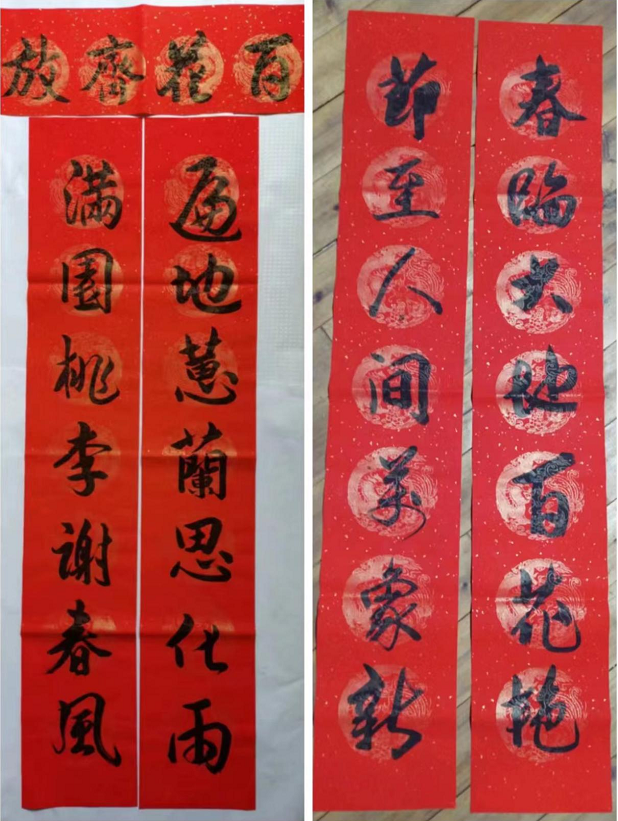 百花齊放
遍地蕙蘭思化雨
滿園桃李謝春風
春臨大地百花艳
節至人间萬象新